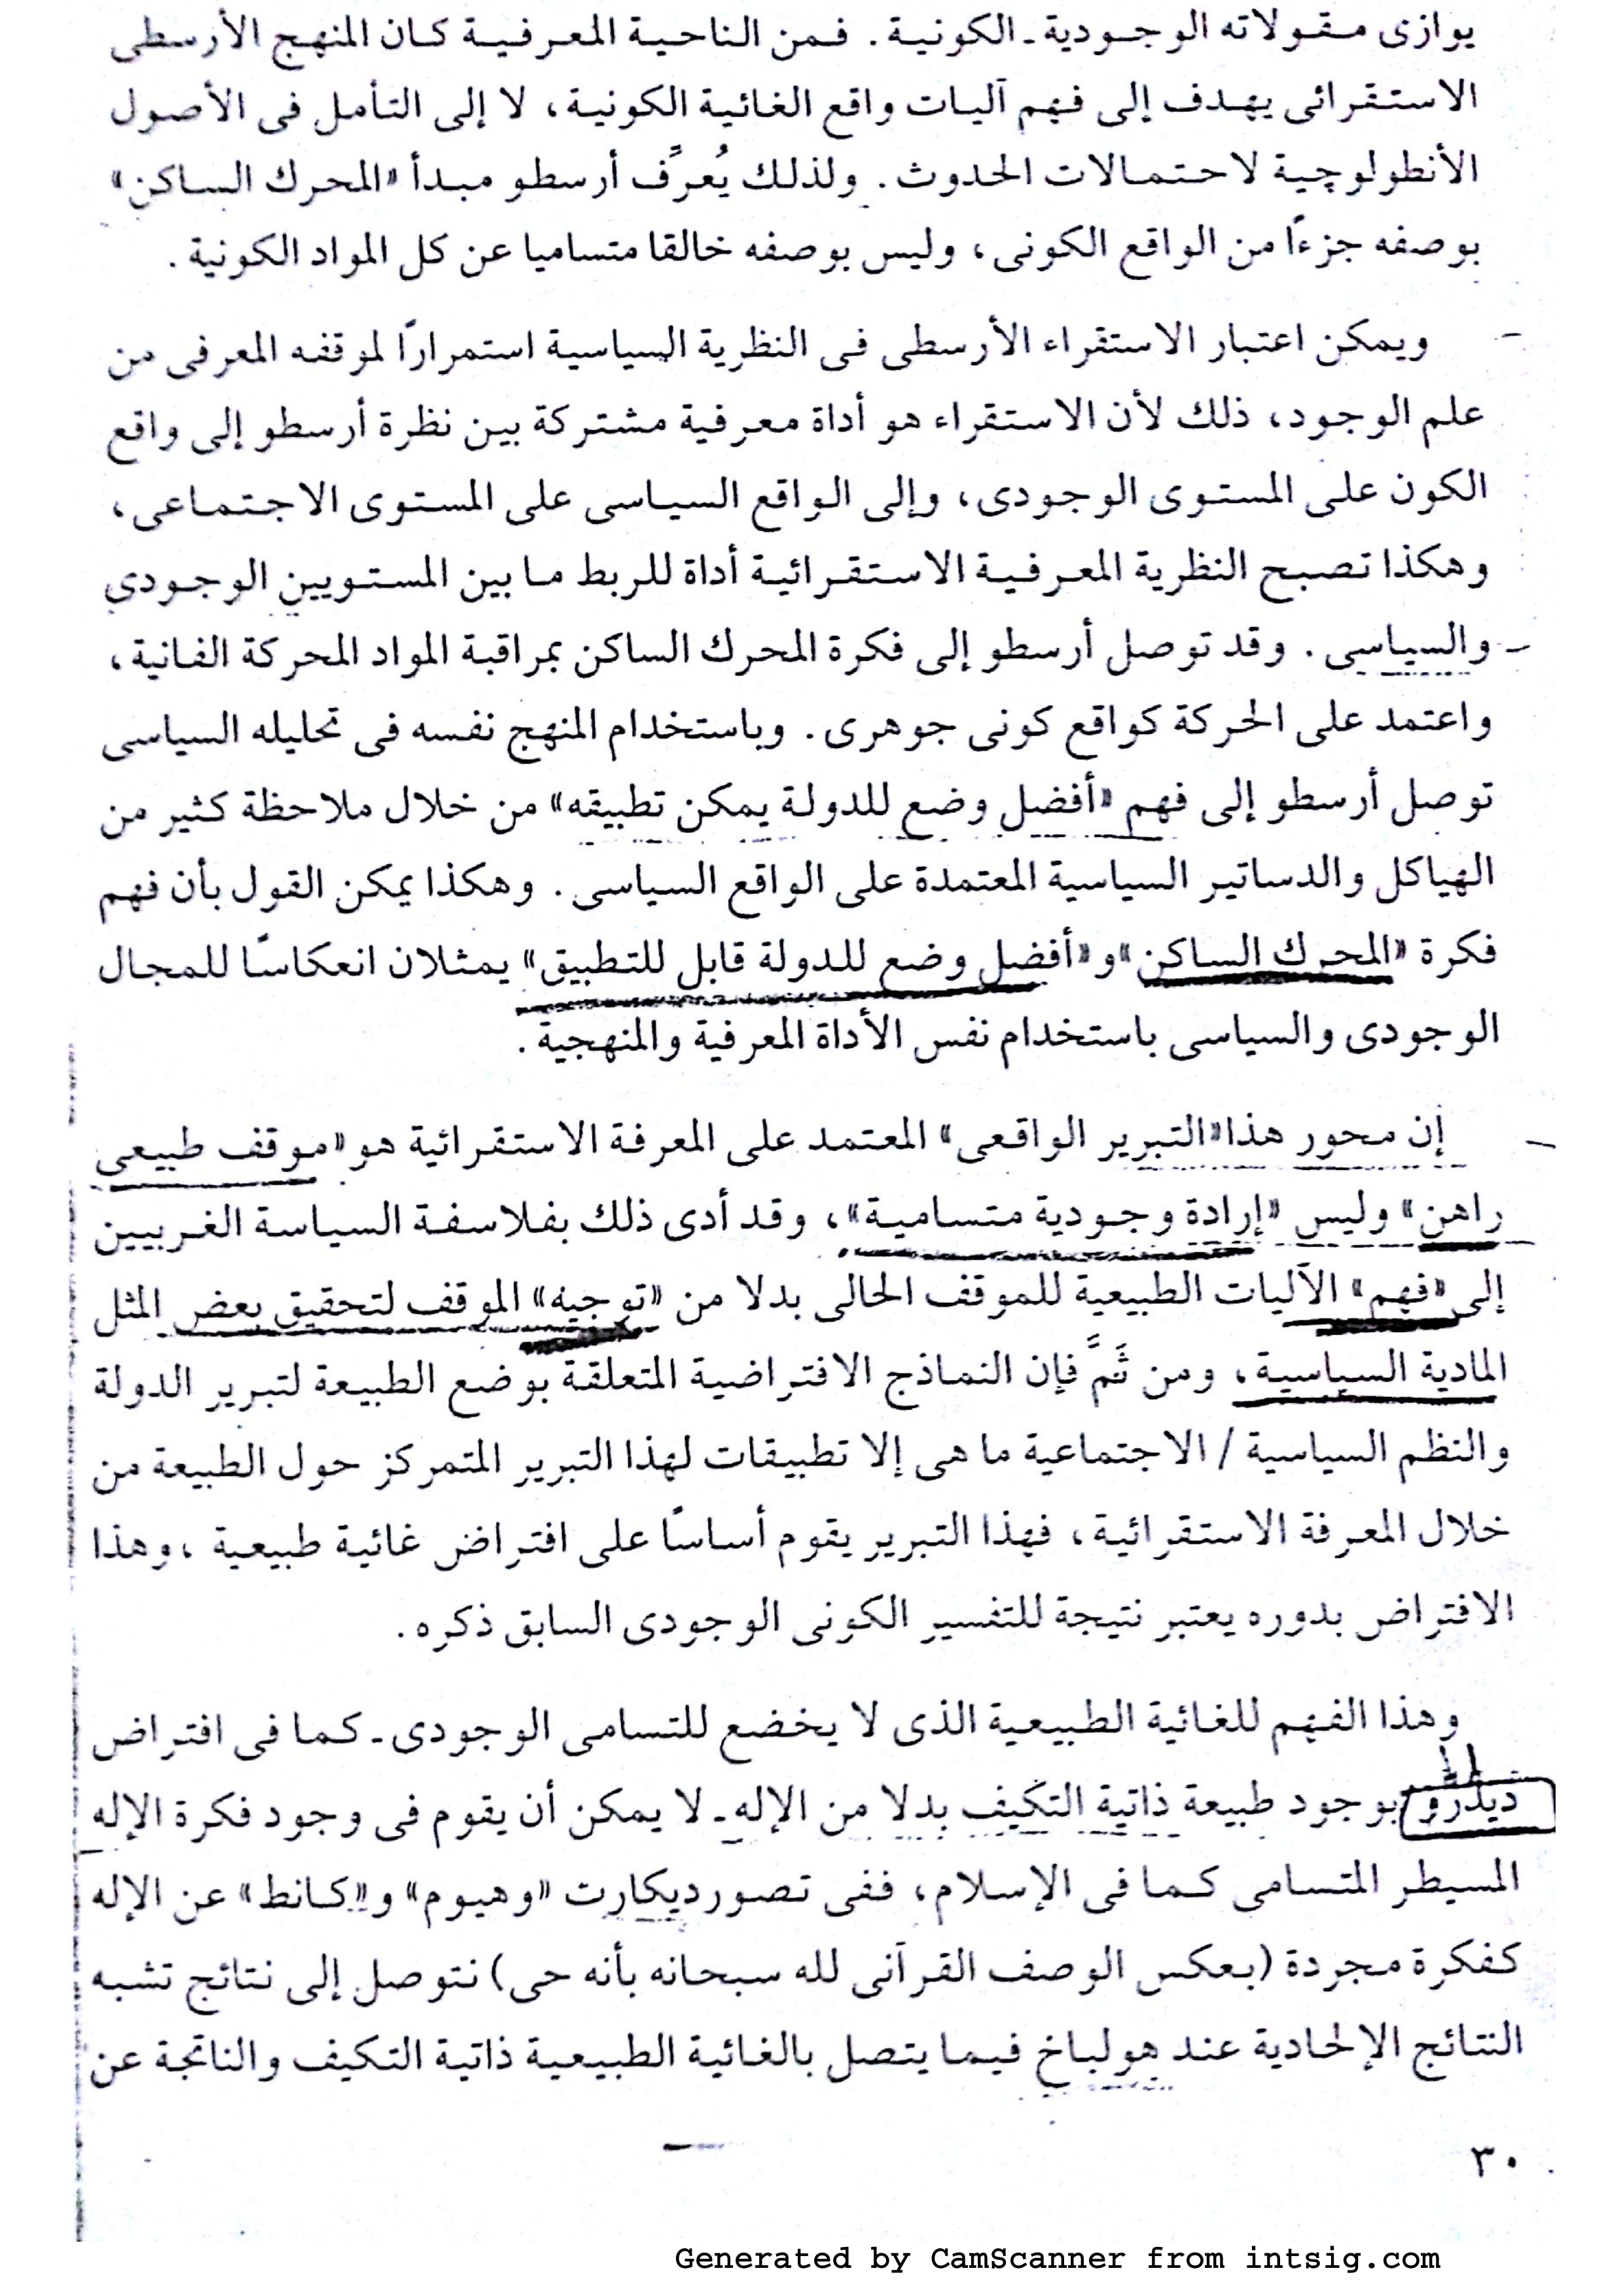 يوازى مقولاته الوجودية ـ الكونية . فمن الناحية المعرفية كان المنهج الأرسطى
الاستقرائى يهدف إلى فهم آليات واقع الغائية الكونية، لا إلى التأمل فى الأصول
الأنطولوچية لاحتمالات الحدوث . ولذلك يُعرِّف أرسطو مبدأ «المحرك الساكن»
بوصفه جزءًا من الواقع الكونى، وليس بوصفه خالقا متساميا عن كل المواد الكونية .
ويمكن اعتبار الاستقراء الأرسطى فى النظرية السياسية استمرارًا لموقفه المعرفى من
علم الوجود، ذلك لأن الاستقراء هو أداة معرفية مشتركة بين نظرة أرسطو إلى واقع
الكون على المستوى الوجودى، وإلى الواقع السياسى على المستوى الاجتماعى،
وهكذا تصبح النظرية المعرفية الاستقرائية أداة للربط ما بين المستويين الوجودى
والسياسى . وقد توصل أرسطو إلى فكرة المحرك الساكن بمراقبة المواد المحركة الفانية،
واعتمد على الحركة كواقع كونى جوهرى . وباستخدام المنهج نفسه فى تحليله السياسى
توصل أرسطو إلى فهم «أفضل وضع للدولة يمكن تطبيقه» من خلال ملاحظة كثير من
الهياكل والدساتير السياسية المعتمدة على الواقع السياسى . وهكذا يمكن القول بأن فهم
فكرة «المحرك الساكن» و«أفضل وضع للدولة قابل للتطبيق» يمثلان انعكاسًا للمجال
الوجودى والسياسى باستخدام نفس الأداة المعرفية والمنهجية .
إن محور هذا «التبرير الواقعى» المعتمد على المعرفة الاستقرائية هو «موقف طبيعى
راهن» وليس «إرادة وجودية متسامية»، وقد أدى ذلك بفلاسفة السياسة الغربيين
إلى «فهم» الآليات الطبيعية للموقف الحالى بدلا من «توجيه» الموقف لتحقيق بعض المثل
المادية السياسية، ومن ثَمَّ فإن النماذج الافتراضية المتعلقة بوضع الطبيعة لتبرير الدولة
والنظم السياسية / الاجتماعية ما هى إلا تطبيقات لهذا التبرير المتمركز حول الطبيعة من
خلال المعرفة الاستقرائية، فهذا التبرير يقوم أساسًا على افتراض غائية طبيعية ، وهذا
الافتراض بدوره يعتبر نتيجة للتفسير الكونى الوجودى السابق ذكره .
وهذا الفهم للغائية الطبيعية الذى لا يخضع للتسامى الوجودى ـ كما فى افتراض
ديدرو بوجود طبيعة ذاتية التكيف بدلا من الإله ـ لا يمكن أن يقوم فى وجود فكرة الإله
المسيطر المتسامى كما فى الإسلام، ففى تصور ديكارت «وهيوم» و«كانط» عن الإله
كفكرة مجردة (بعكس الوصف القرآنى لله سبحانه بأنه حى) نتوصل إلى نتائج تشبه
النتائج الإلحادية عند هولباخ فيما يتصل بالغائية الطبيعية ذاتية التكيف والناتجة عن
٣٠
Generated by CamScanner from intsig.com